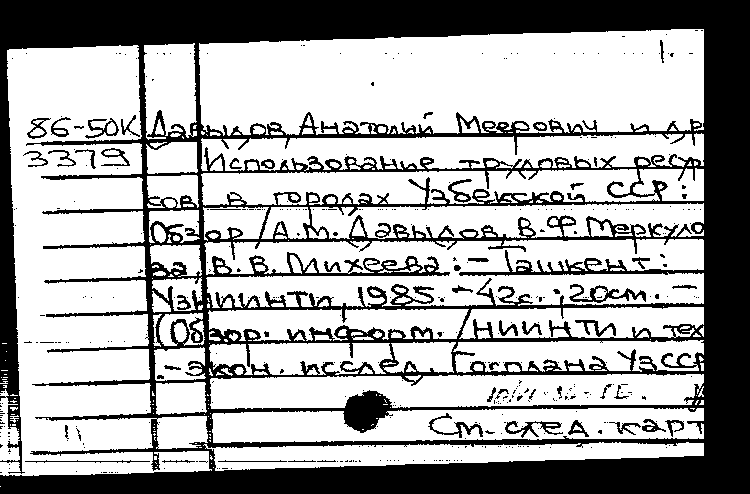 1.
86-50К Давыдов, Анатолий Меерович и др
3379 Использование трудовых ресур
сов в городах Узбекской ССР:
Обзор / А.М. Давыдов, В.Ф. Меркуло
ва, В.В. Михеева. - Ташкент:
УзНИИНТИ, 1985. - 42с.; 20см. -
(Обзор. информ. / НИИНТИ и тех
.-экон. исслед. Госплана УзССР
См. след. карт